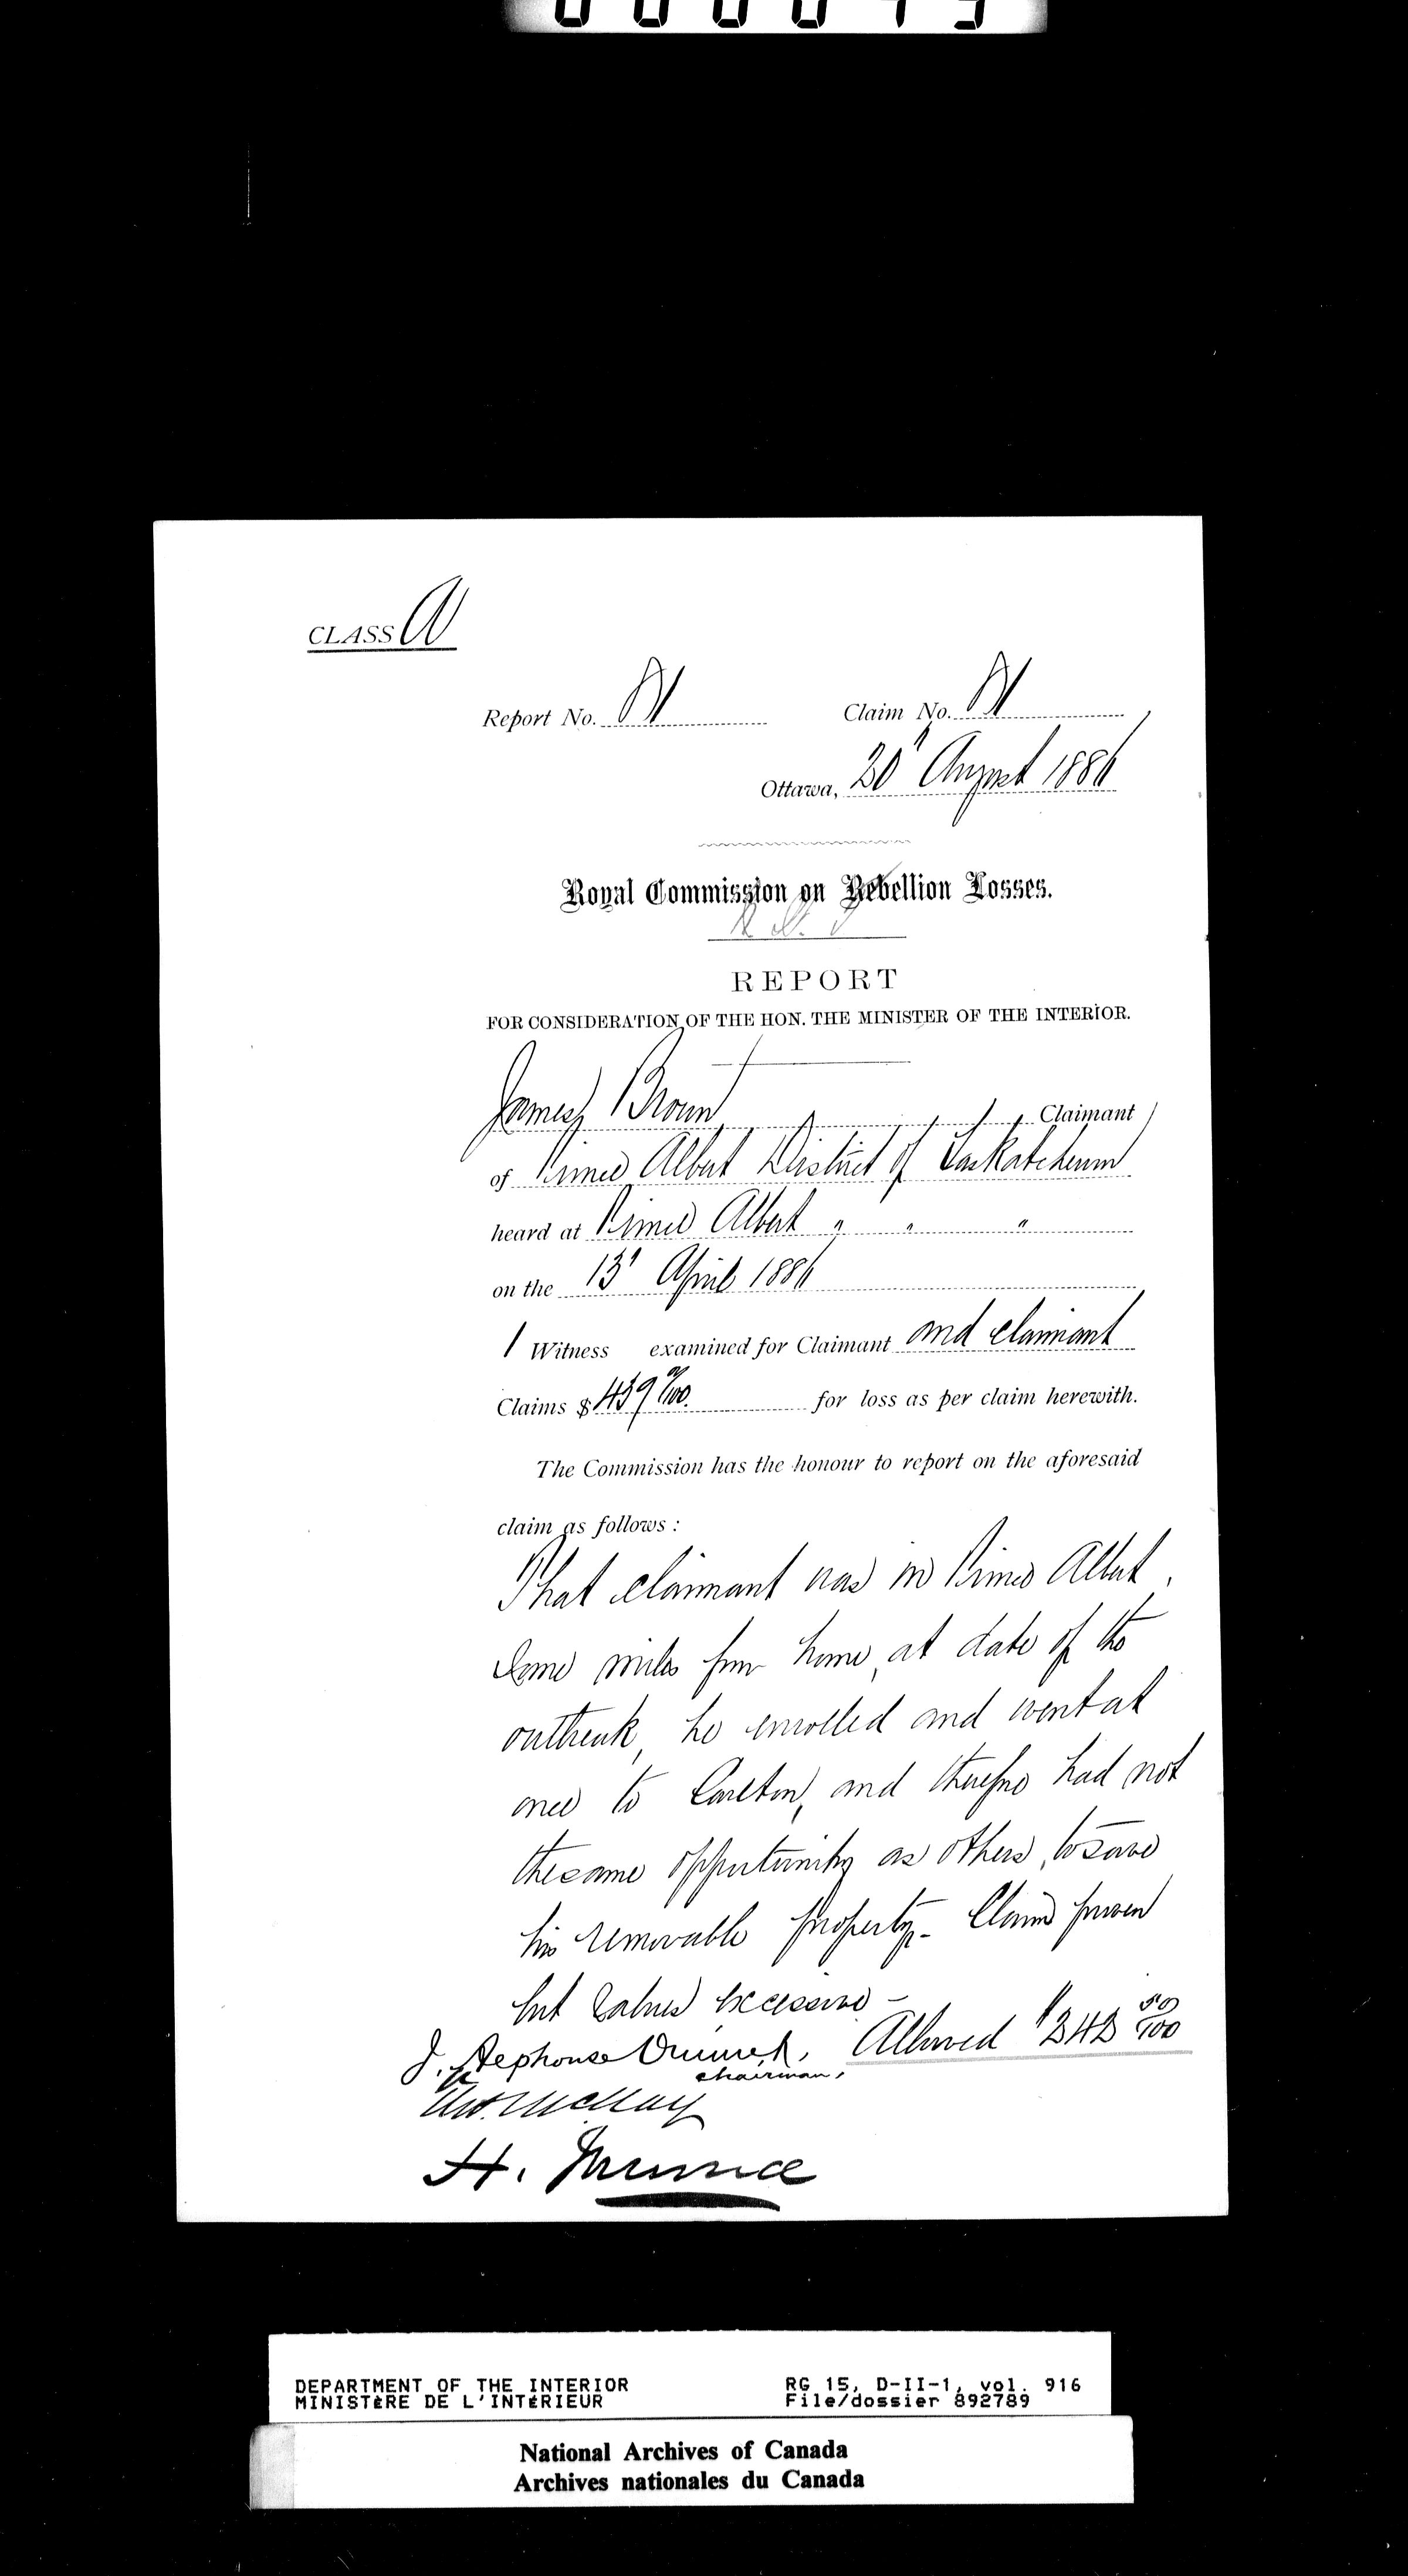 CLASS A
Report No. 81 Claim No. 81
Ottawa, 20' August 1886
Royal Commission on Rebellion Losses.
REPORT
FOR CONSIDERATION OF THE HON. THE MINISTER OF THE INTERIOR.
James Brown Claimant
of Prince Albert District of Saskatchewan
heard at Prince Albert " " "
on the 13' April 1886
1 Witness examined for Claimant and claimant
Claims $ 439 /100. for loss as per claim herewith.
The Commission has the honour to report on the aforesaid
claim as follows :
That claimant was in Prince Albert,
some miles from home, at date of the
outbreak, he enrolled and went at
once to Carlton, and therefore had not
the same opportunity as others, to save
his removable property - Claim proven
but values excessive -
J. Alphonse Ouimet, Allowed $242 50/100
chairman,
Thos. McKay
H. Muma
DEPARTMENT OF THE INTERIOR RG 15, D-II-1, vol. 916
MINISTÈRE DE L'INTÉRIEUR File/dossier 892789
National Archives of Canada
Archives nationales du Canada